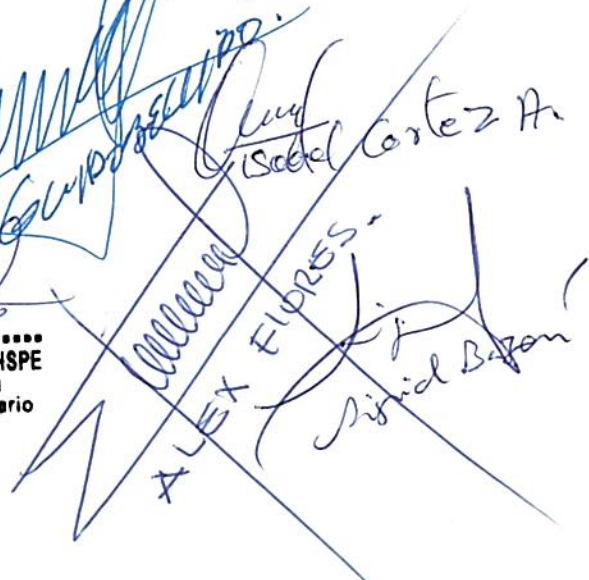 GUIDO BELLIDO.
Isabel Cortez A.
ALEX FLORES.
Sigrid Bazán
NSPE
ario